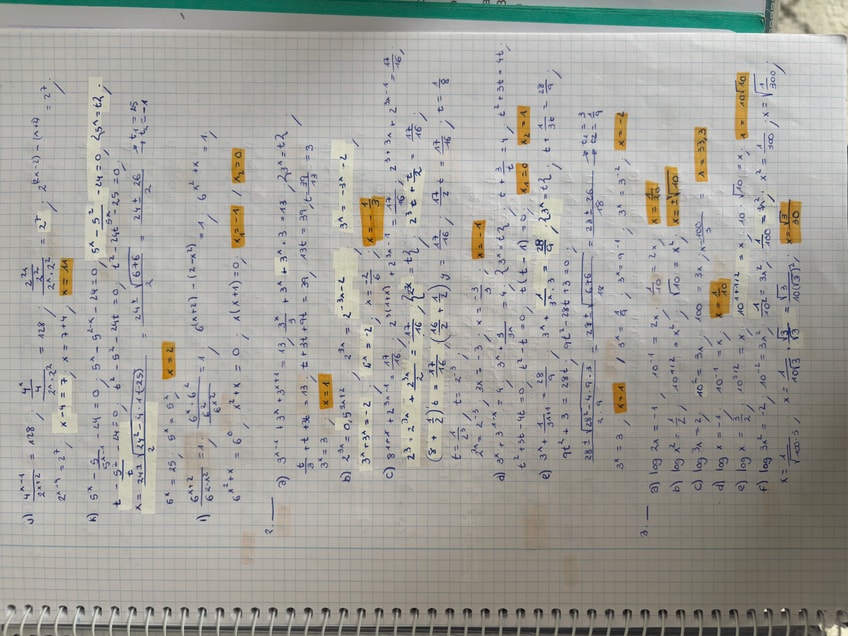 j) 4^(x-1) / 2^(x+2) = 128 , = 128 , = 2^7 , 2^((2x-2)-(x+2)) = 2^7 ,
2^(x-4) = 2^7 , x-4 = 7 , x = 7+4 , x = 11
k) 5^x - 5 / 5^(x-1) - 24 = 0 , 5^x - 5^(2-x) - 24 = 0 , 5^x - 5^2/5^x - 24 = 0 , {5^x = t} ,
t - 5^2/t - 24 = 0 , t^2 - 5^2 - 24t = 0 , t^2 - 24t - 25 = 0 ,
= 24 ± 26 / 2 → t1 = 25 → t2 = -1
= 25 , 5^x = 5^2 x = 2
l) 6^(x+2) / 6^(2-x^2) = 1 , = 1 , 6^((x+2)-(2-x^2)) = 1 , 6^(x^2+x) = 1 ,
6^(x^2+x) = 6^0 , x^2+x = 0 , x(x+1) = 0 , x1 = -1 , x2 = 0
2.
a) 3^(x-1) + 3^x + 3^(x+1) = 13 , 3^x/3 + 3^x + 3^x · 3 = 13 , {3^x = t} ,
t/3 + t + 3t = 13 , t + 3t + 9t = 39 , 13t = 39 , t = 39/13 = 3
3^x = 3 , x = 1
b) 2^(3x) = 0,5^(3x+2) , 2^(3x) = 2^(-3x-2) , 3^x = -3^x - 2
3^x + 3^x = -2 , 6^x = -2 , x = -2/6 , x = -1/3
c) 8^(1+x) + 2^(3x-1) = 17/16 , 2^(3(1+x)) + 2^(3x-1) = 17/16 , 2^(3+3x) + 2^(3x-1) = 17/16 ,
2^3 · 2^(3x) + 2^(3x)/2 = 17/16 , 2^3 t + t/2 = 17/16 ,
(8 + 1/2) t = 17/16 , (16/2 + 1/2) y = 17/16 , 17/2 t = 17/16 , t = 1/8
t = 1/2^3 , t = 2^-3
2^(3x) = 2^-3 , 3x = -3 , x = -3/3 , x = -1
d) 3^x + 3^(1-x) = 4 , 3^x + 3/3^x = 4 , {3^x = t} , t + 3/t = 4 , t^2 + 3t = 4t .
t^2 + 3t - 4t = 0 , t^2 - t = 0 , t(t-1) = 0 , x1 = 0 x2 = 1
e) 3^x + 1/3^(x+1) = 28/9 , 3^x + 1/(3^x · 3) = 28/9 , {3^x = t} , t + 1/3t = 28/9 ,
9t^2 + 3 = 28t , 9t^2 - 28t + 3 = 0 ,
28 ± √(28^2 - 4·9·3) / 2·9 = = 28 ± 26 / 18 → t1 = 3 → t2 = 1/9
3^x = 3 , x = 1 , 3^x = 1/9 , 3^x = 9^-1 , 3^x = 3^-2 , x = -2
3.
a) log 2x = -1 , 10^-1 = 2x , 1/10 = 2x , x = 1/20
b) log x^2 = 1/2 , 10^(1/2) = x^2 , √10 = x^2 , x = ±√√10
c) log 3x = 2 , 10^2 = 3x , 100 = 3x , x = 100/3 x = 33,3
d) log x = -1 , 10^-1 = x , x = 1/10
e) log x = 3/2 , 10^(3/2) = x , 10^(1+1/2) = x , 10 · √10 = x , x = 10√10
f) log 3x^2 = -2 , 10^-2 = 3x^2 , 1/10^2 = 3x^2 , 1/100 = 3x^2 , x^2 = 1/300 , x = √(1/300) ,
x = 1/√(100·3) , x = 1/10√3 · √3/√3 = √3/10(√3)^2 , x = √3/30